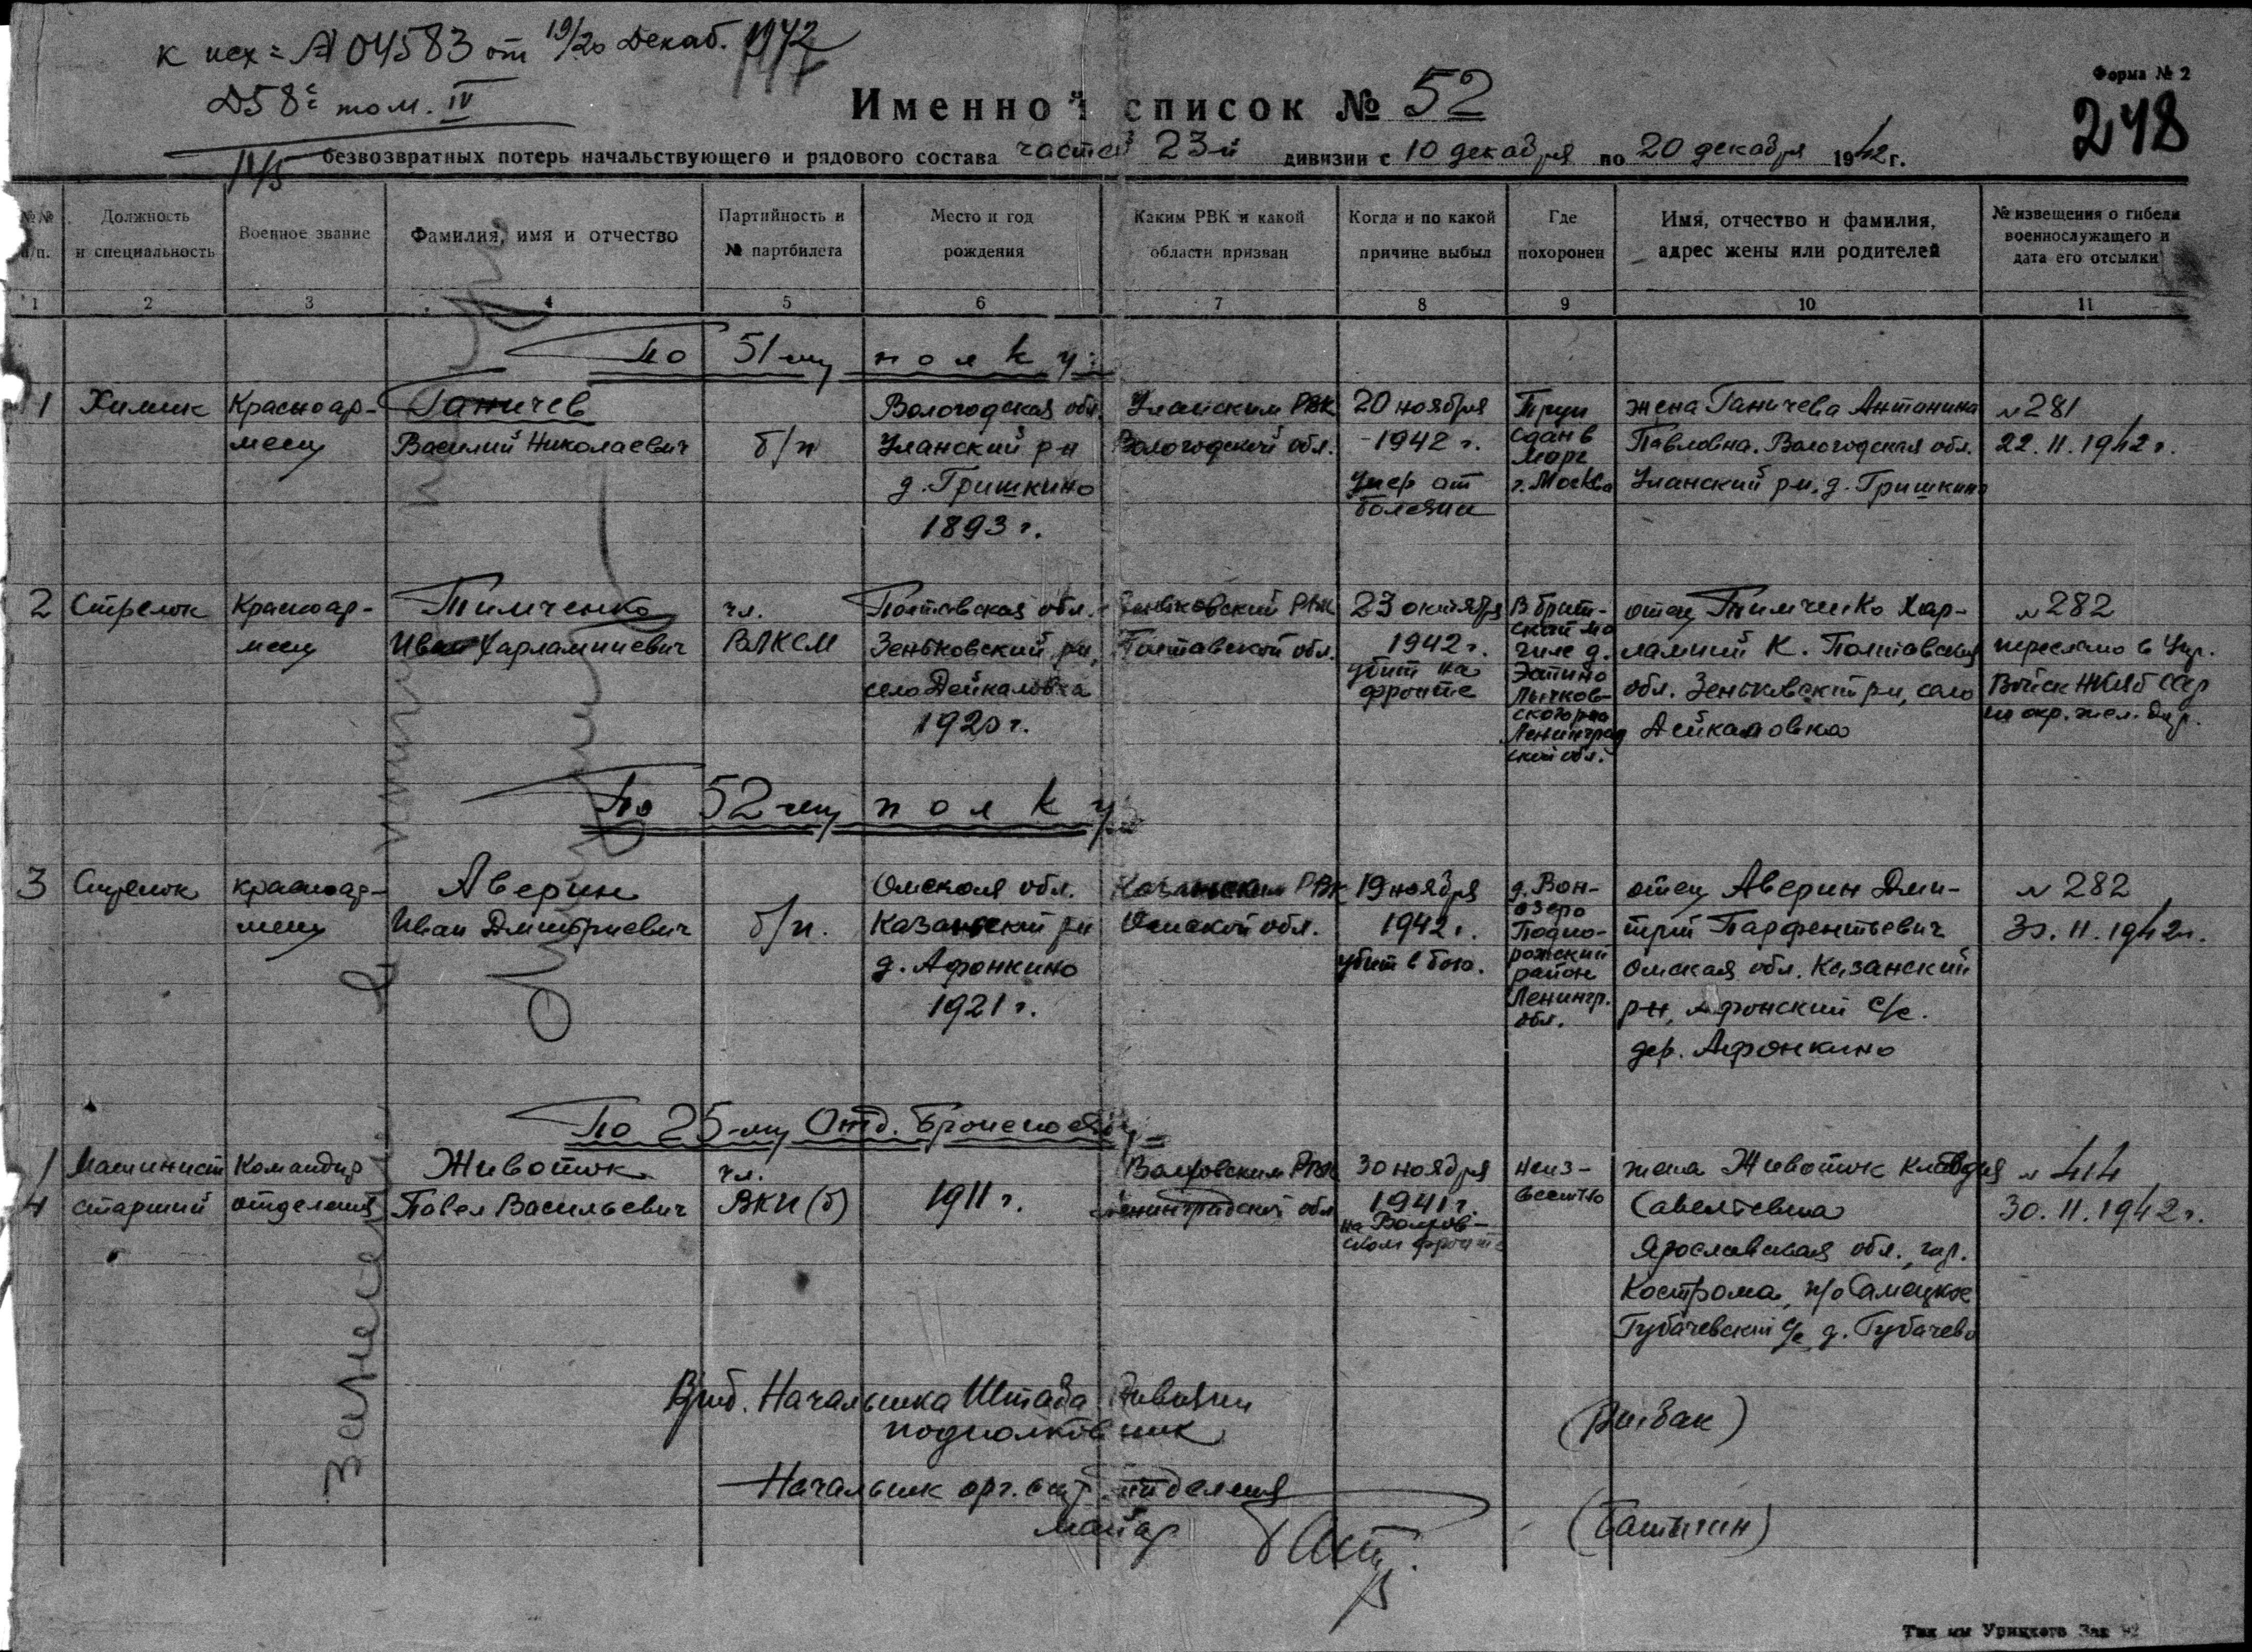 к исх = А 04583 от 19/20 Декаб. 1942
D58 том. IV
Форма № 2
Именной список № 52
248
безвозвратных потерь начальствующего и рядового состава частей 23-й дивизии с 10 декабря по 20 декабря 1942 г.
№№ п/п. Должность и специальность Военное звание Фамилия, имя и отчество Партийность и № партбилета Место и год рождения Каким РВК и какой области призван Когда и по какой причине выбыл Где похоронен Имя, отчество и фамилия, адрес жены или родителей № извещения о гибели военнослужащего и дата его отсылки
1 2 3 4 5 6 7 8 9 10 11
По 51-му полку:
1 Химик Красноар- Ганичев Вологодская обл. Уланским РВК 20 ноября Труп жена Ганичева Антонина № 281
меец Василий Николаевич б/п Уланский р-н Вологодской обл. 1942 г. сдан в Павловна. Вологодская обл. 22.11.1942 г.
д. Гришкино умер от морг г. Москва Уланский р-н, д. Гришкино
1893 г. болезни
2 Стрелок Красноар- Тимченко чл. Полтавская обл. Зеньковский РВК 23 октября В брат- отец Тимченко Хар- № 282
меец Иван Харлампиевич ВЛКСМ Зеньковский р-н, Полтавской обл. 1942 г. ской мо гиле д. лампий К. Полтавская переслано в Упр.
село Дейкаловка убит на фронте Лычков- обл. Зеньковский р-н, село Войск НКВД СССР
1920 г. ского р-на Ленинград ской обл. Дейкаловка по охр. жел. дор.
По 52-му полку
3 Стрелок красноар- Аверин Омская обл. Казанским РВК 19 ноября д. Вон- отец Аверин Дми- № 282
меец Иван Дмитриевич б/п. Казанский р-н Омской обл. 1942 г. озеро Подпо- трий Парфентьевич 30.11.1942 г.
д. Афонкино убит в бою. рожский район Омская обл. Казанский
1921 г. Ленингр. обл. р-н, Афонский с/с.
дер. Афонкино
По 25-му Отд. Бронепоезду
1 Машинист Командир Животок чл. Волховским РВК 30 ноября неиз- жена Животок Клавдия № 414
4 старший отделения Павел Васильевич ВКП(б) 1911 г. Ленинградской обл 1941 г. вестно Савельевна 30.11.1942 г.
на Волхов-
ском фронте Ярославская обл., гор.
Кострома, п/о Самецкое
Губачевский с/с д. Губачево
Врид. Начальника Штаба Дивизии
подполковник
Начальник орг. стр. отделения
майор
(Батыгин)
Тип им Урицкого Зак 92